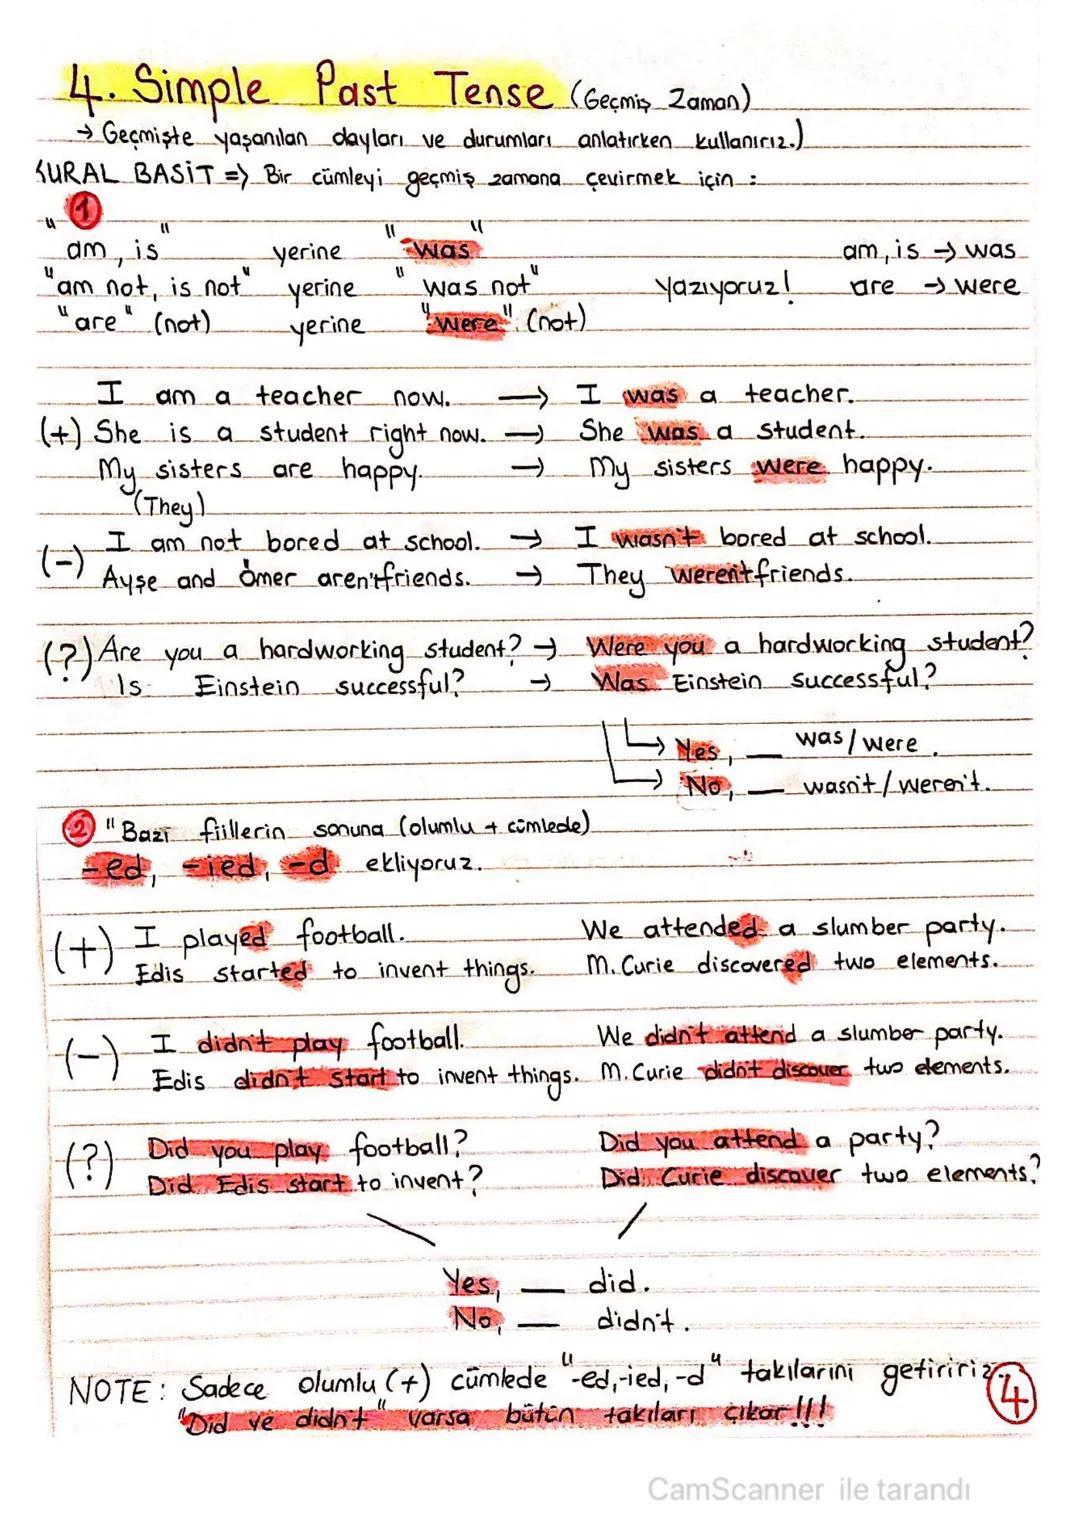 4. Simple Past Tense (Geçmiş Zaman)
→ Geçmişte yaşanılan olayları ve durumları anlatırken kullanırız.)
KURAL BASİT => Bir cümleyi geçmiş zamana çevirmek için :
①
"am, is" yerine "was" am, is → was
"am not, is not" yerine "was not" Yazıyoruz! are → were
"are" (not) yerine "were" (not)
I am a teacher now. → I was a teacher.
(+) She is a student right now. → She was a student.
My sisters are happy. → My sisters were happy.
(They)
(-) I am not bored at school. → I wasn't bored at school.
Ayşe and Ömer aren't friends. → They weren't friends.
(?) Are you a hardworking student? → Were you a hardworking student?
Is Einstein successful? → Was Einstein successful?
→ Yes, __ was/were.
→ No, __ wasn't/weren't.
② "Bazı fiillerin sonuna (olumlu + cümlede)
-ed, -ied, -d ekliyoruz.
(+) I played football. We attended a slumber party.
Edis started to invent things. M. Curie discovered two elements.
(-) I didn't play football. We didn't attend a slumber party.
Edis didn't start to invent things. M. Curie didn't discover two elements.
(?) Did you play football? Did you attend a party?
Did Edis start to invent? Did Curie discover two elements?
Yes, __ did.
No, __ didn't.
NOTE: Sadece olumlu (+) cümlede "-ed,-ied,-d" takılarını getiririz.
"Did ve didn't" varsa bütün takıları çıkar!!!
④
CamScanner ile tarandı